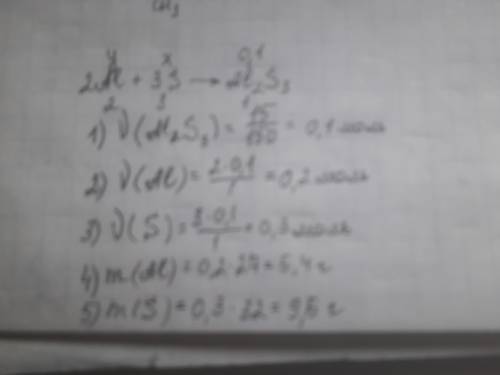 y x 0,1
2Al + 3S → Al₂S₃
2 3 1
1) ν(Al₂S₃) = 15/150 = 0,1 моль
2) ν(Al) = 2·0,1/1 = 0,2 моль
3) ν(S) = 3·0,1/1 = 0,3 моль
4) m(Al) = 0,2·27 = 5,4 г
5) m(S) = 0,3·32 = 9,6 г